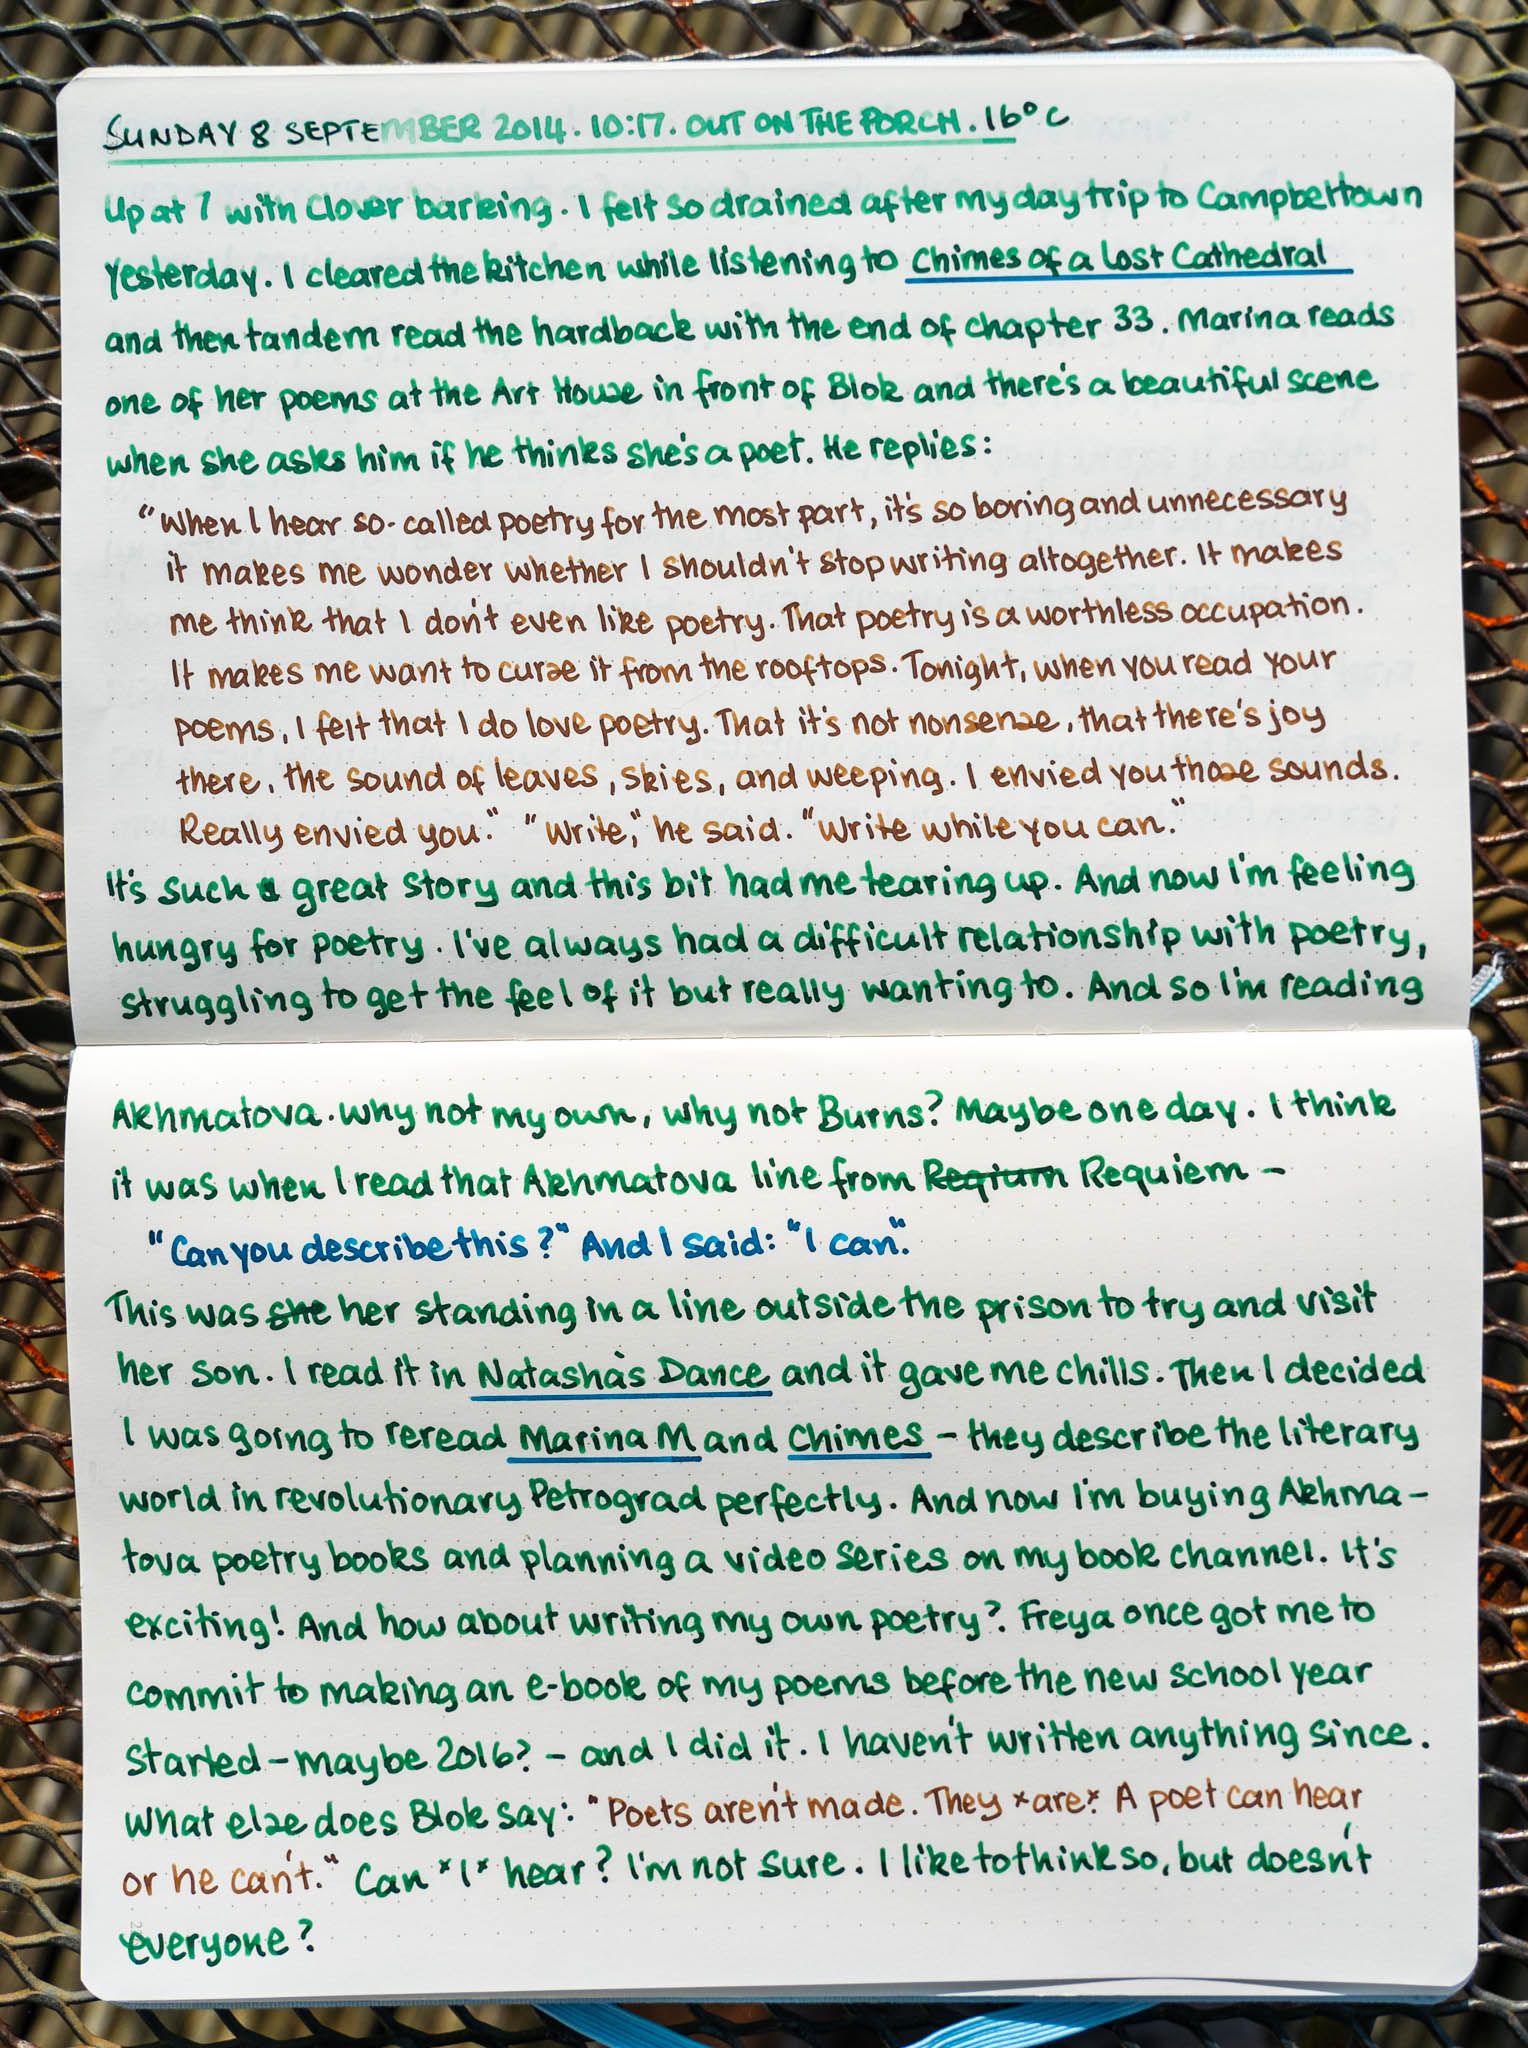 SUNDAY 8 SEPTEMBER 2014. 10:17. OUT ON THE PORCH. 16°C
Up at 7 with Clover barking. I felt so drained after my day trip to Campbeltown
yesterday. I cleared the kitchen while listening to Chimes of a Lost Cathedral
and then tandem read the hardback with the end of chapter 33. Marina reads
one of her poems at the Art House in front of Blok and there's a beautiful scene
when she asks him if he thinks she's a poet. He replies:
"When I hear so-called poetry for the most part, it's so boring and unnecessary
it makes me wonder whether I shouldn't stop writing altogether. It makes
me think that I don't even like poetry. That poetry is a worthless occupation.
It makes me want to curse it from the rooftops. Tonight, when you read your
poems, I felt that I do love poetry. That it's not nonsense, that there's joy
there, the sound of leaves, skies, and weeping. I envied you those sounds.
Really envied you." "Write," he said. "Write while you can."
It's such a great story and this bit had me tearing up. And now I'm feeling
hungry for poetry. I've always had a difficult relationship with poetry,
struggling to get the feel of it but really wanting to. And so I'm reading
Akhmatova. Why not my own, why not Burns? Maybe one day. I think
it was when I read that Akhmatova line from Reqium Requiem –
"Can you describe this?" And I said: "I can."
This was she her standing in a line outside the prison to try and visit
her son. I read it in Natasha's Dance and it gave me chills. Then I decided
I was going to reread Marina M and Chimes – they describe the literary
world in revolutionary Petrograd perfectly. And now I'm buying Akhma-
tova poetry books and planning a video series on my book channel. It's
exciting! And how about writing my own poetry? Freya once got me to
commit to making an e-book of my poems before the new school year
started – maybe 2016? – and I did it. I haven't written anything since.
What else does Blok say: "Poets aren't made. They *are*. A poet can hear
or he can't." Can *I* hear? I'm not sure. I like to think so, but doesn't
everyone?